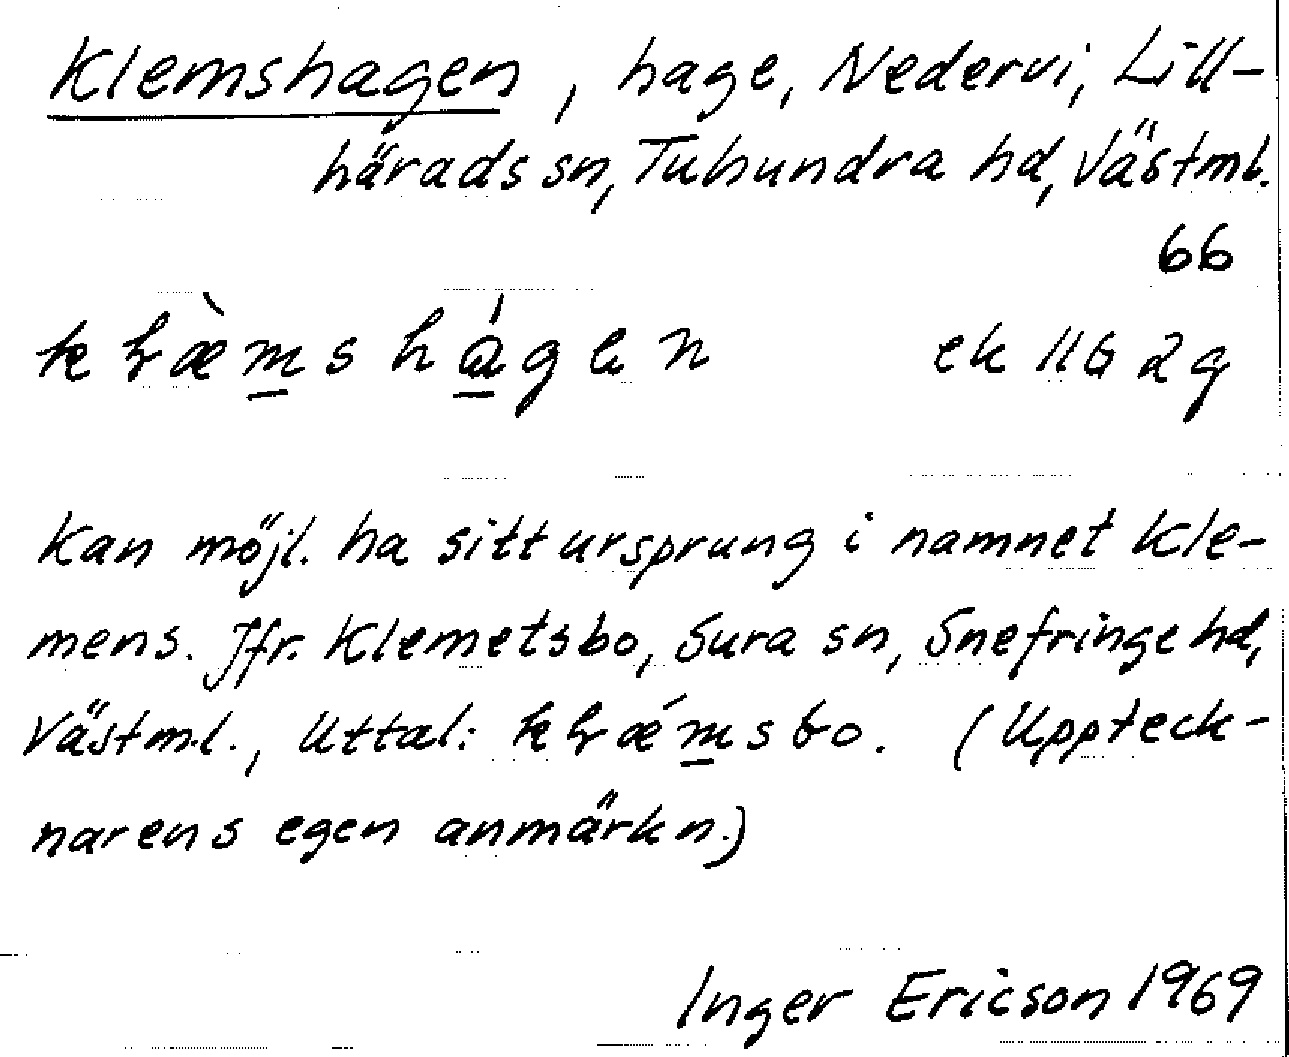 Klemshagen, hage, Nedervi, Lill-
härads sn, Tuhundra hd, Västml.
66
ek 11G 2g
Kan möjl. ha sitt ursprung i namnet Kle-
mens. Jfr. Klemetsbo, Sura sn, Snefringe hd,
Västml., Uttal: (Uppteck-
narens egen anmärkn.)
Inger Ericson 1969